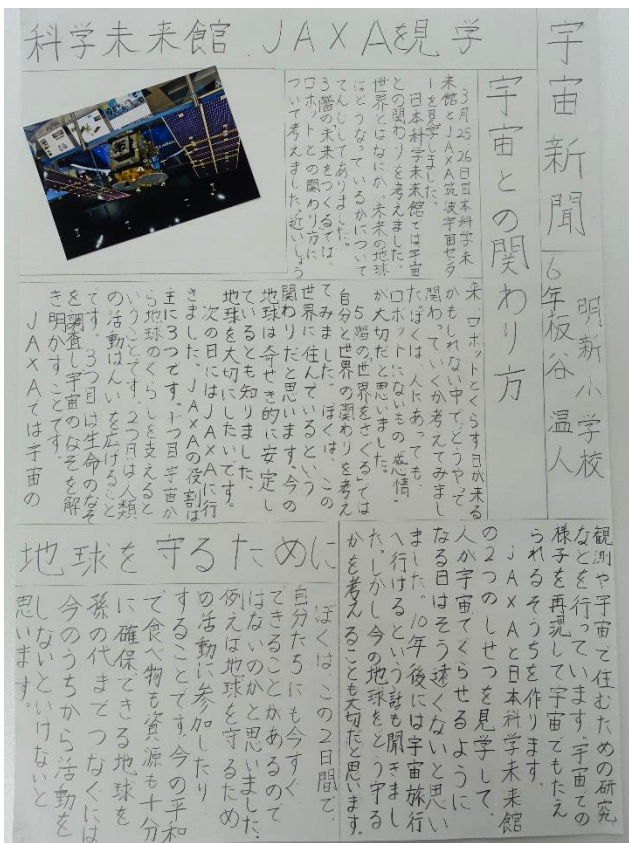 宇宙新聞
明新小学校
6年板谷 温人
科学未来館 JAXAを見学
宇宙との関わり方
3月25,26日日本科学未
来館とJAXA筑波宇宙センタ
ーを見学しました。
日本科学未来館では宇宙
との関わりを考えました。
世界とはなにか、未来の地球
はどうなっているかについて
てんじしてありました。
3階の未来をつくるでは、
ロボットとの関わり方に
ついて考えました。近いしょう
来、ロボットとくらす日が来る
かもしれない中で、どうやって
関わっていくか考えてみまし
た。ぼくは、人にあっても、
ロボットにないもの「感情」
が大切だと思いました。
5階の「世界をさぐる」では
自分と世界の関わりを考え
てみました。ぼくは、この
世界に住んでいるという
関わりだと思います。今の
地球は奇せき的に安定し
ているとも知りました。
地球を大切にしたいです。
次の日にはJAXAに行
きました。JAXAの役割は
主に3つです。1つ目宇宙か
ら地球のくらしを支えると
いうことです。2つ目は人類
の活動はんいを広げること
です。3つ目は生命のなぞ
を調査し宇宙のなぞを解
き明かすことです。
JAXAでは宇宙の
観測や宇宙で住むための研究
などを行っています。宇宙での
様子を再現して宇宙でもたえ
られるそうちを作ります。
JAXAと日本科学未来館
の2つのしせつを見学して、
人が宇宙でくらせるように
なる日はそう遠くないと思い
ました。10年後には宇宙旅行
へ行けるという話も聞きまし
た。しかし今の地球をどう守る
かを考えることも大切だと思います。
地球を守るために
ぼくは、この2日間で、
自分たちにも今すぐ
できることがあるので
はないのかと思いました。
例えば地球を守るため
の活動に参加したり
することです。今の平和
で食べ物も資源も十分
に確保できる地球を
孫の代までつなぐには
今のうちから活動を
しないといけないと
思います。